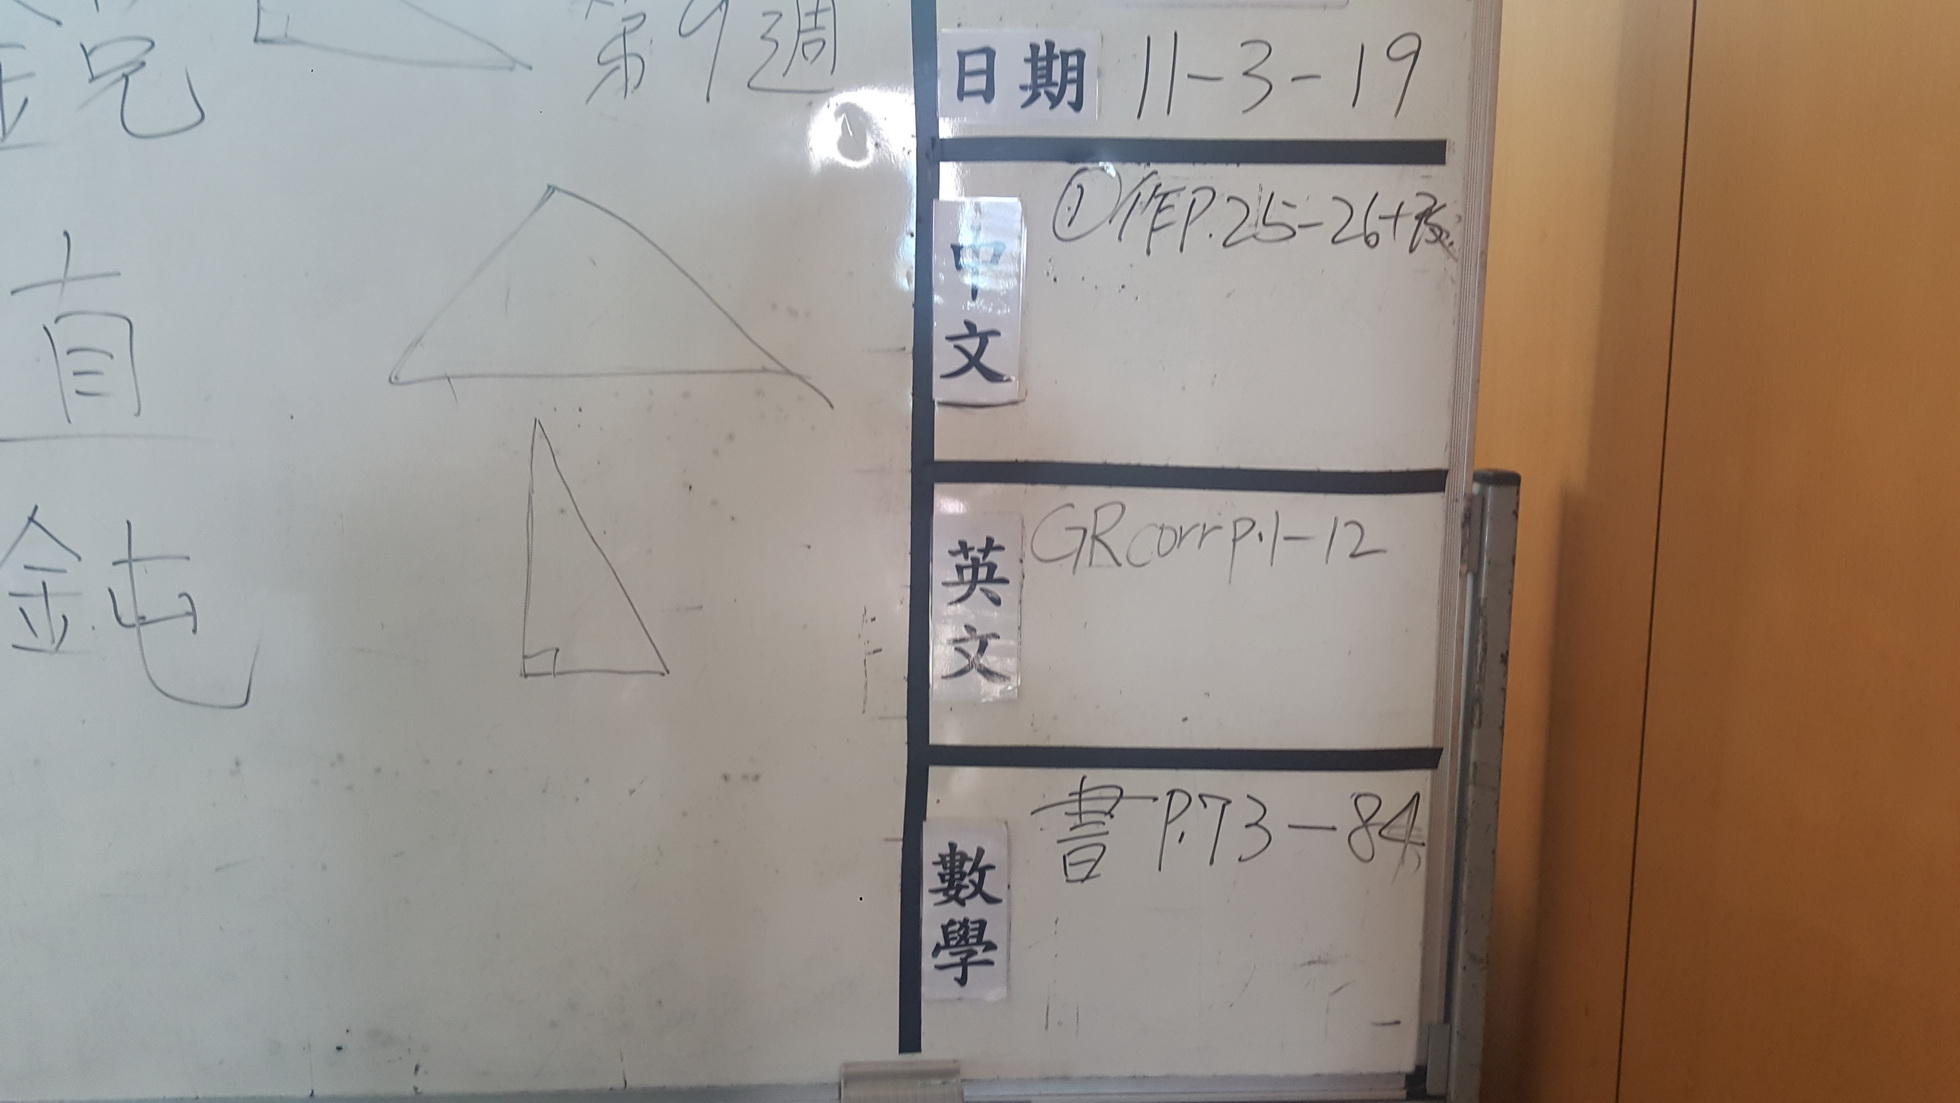 銳
第9週
直
鈍
日期 11-3-19
中文
①作P.25-26+改
英文
GR corr p.1-12
數學
書P.73-84